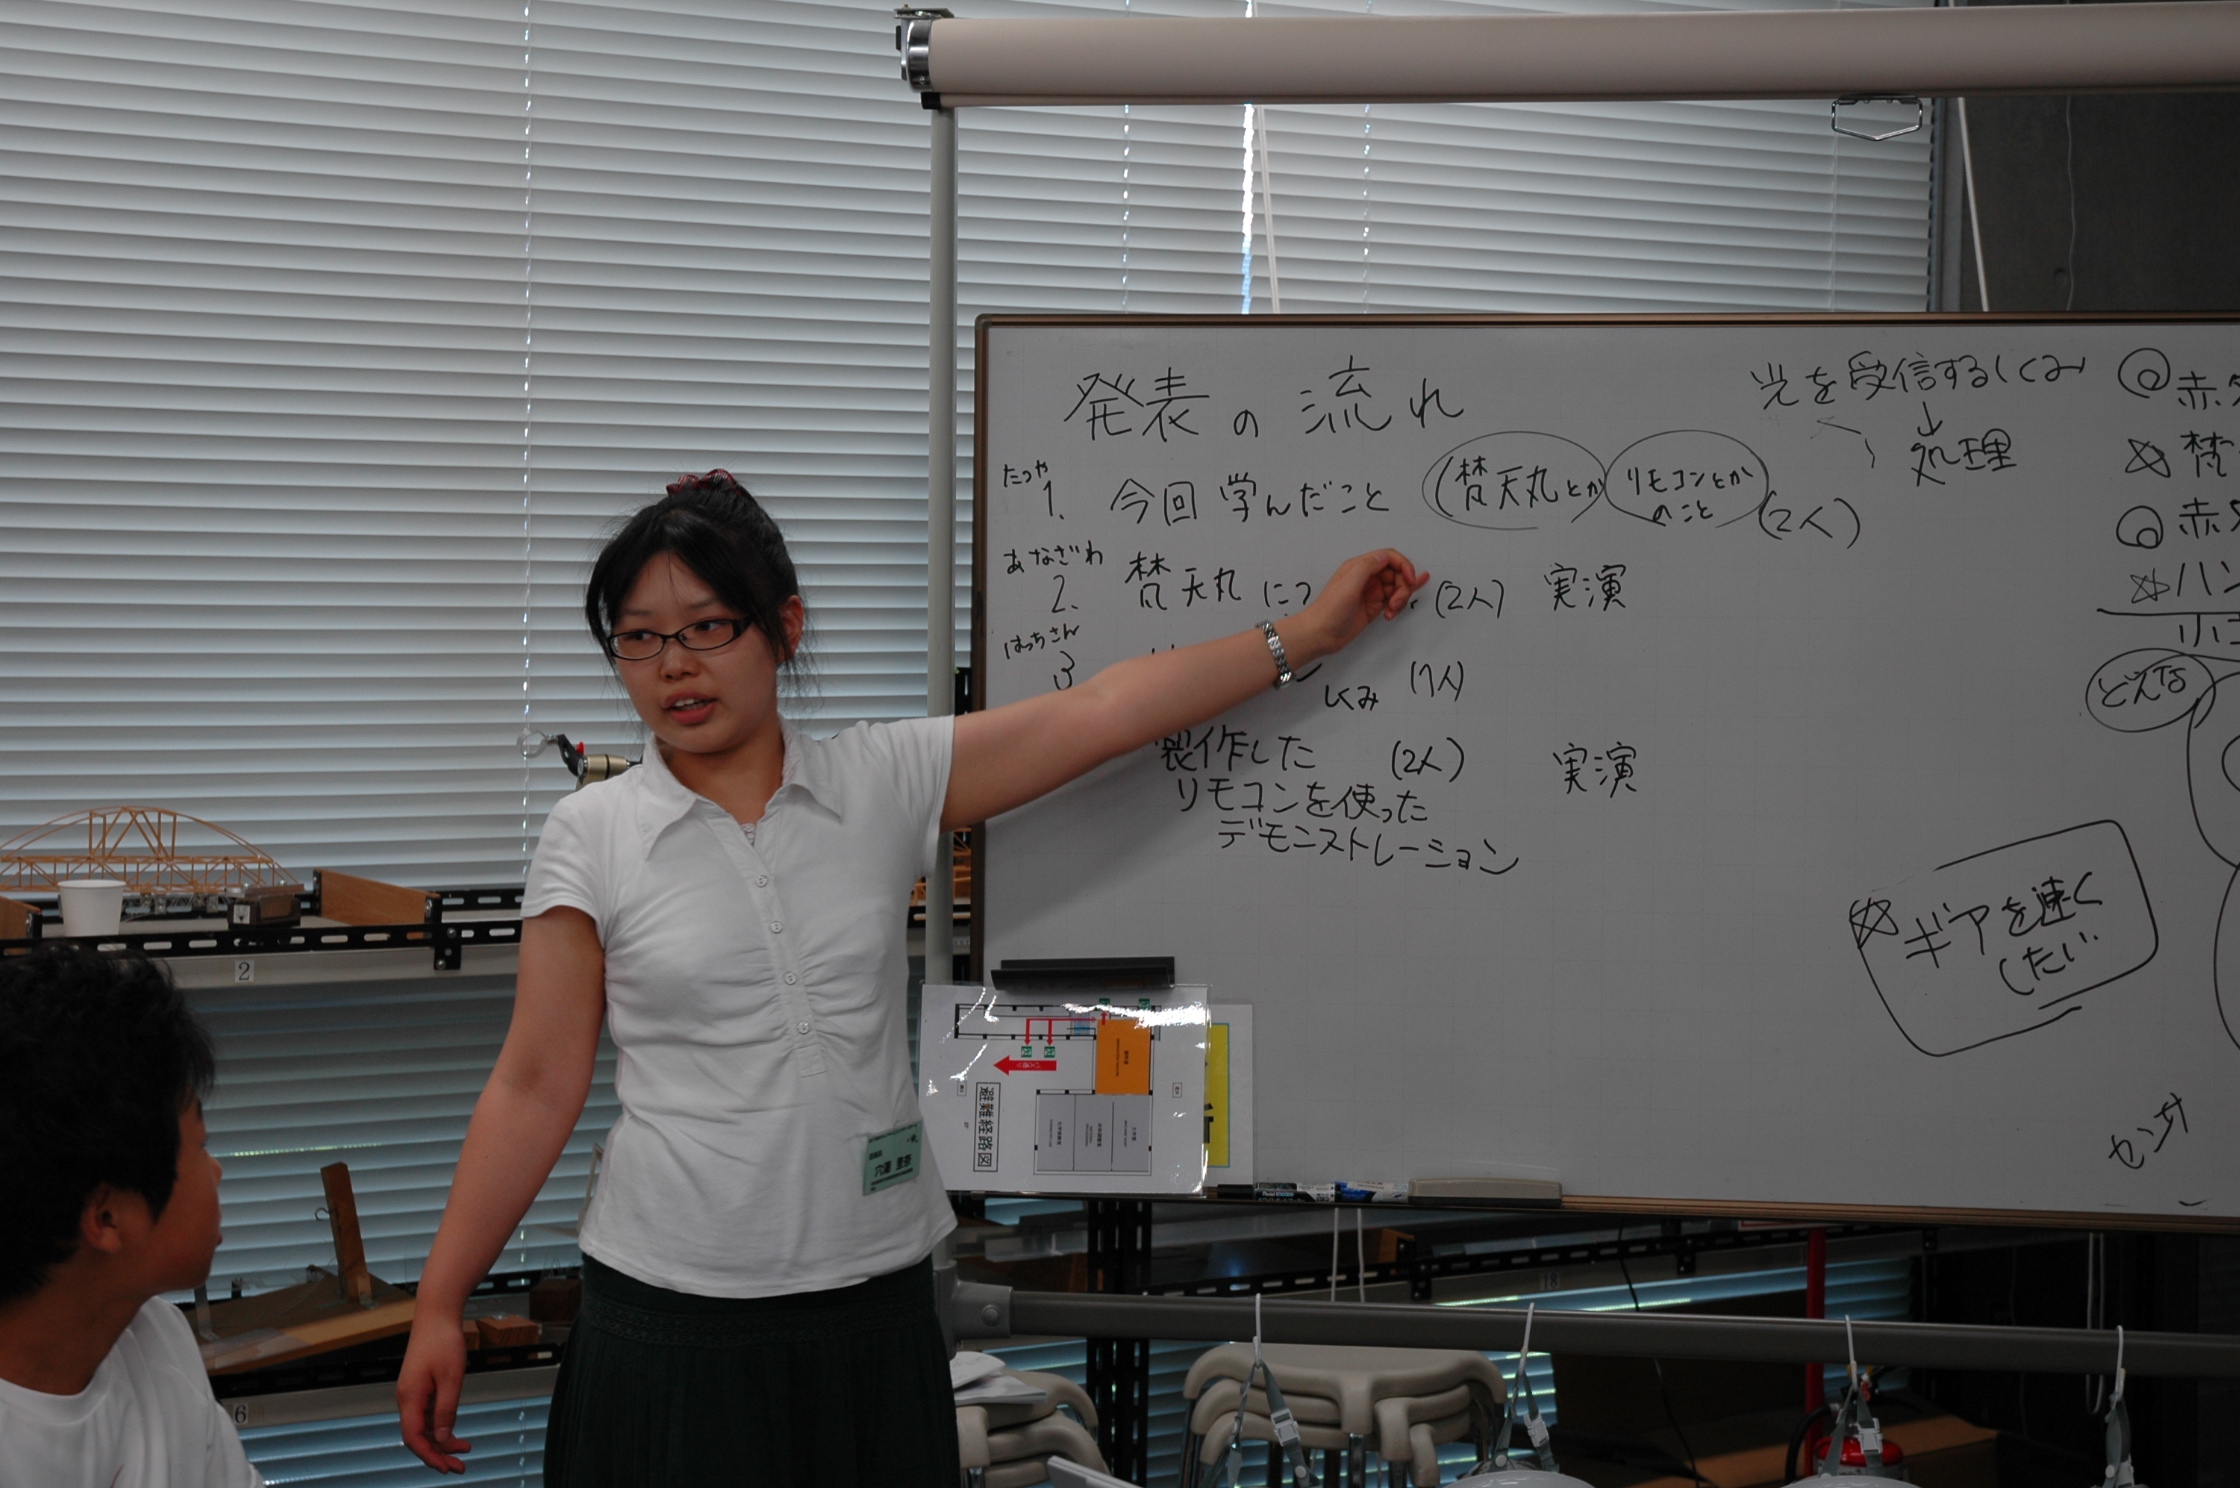 発表の流れ
たつや
1. 今回学んだこと (梵天丸とか リモコンとか
のこと (2人)
あなざわ
2. 梵天丸につ (2人) 実演
はっちさん
3
しくみ (1人)
製作した (2人) 実演
リモコンを使った
デモンストレーション
光を受信するしくみ
↓
処理
◎赤外
☆梵
◎赤外
☆ハン
どんな
☆ギアを速く
したい
センサ
避難経路図
2
6
18